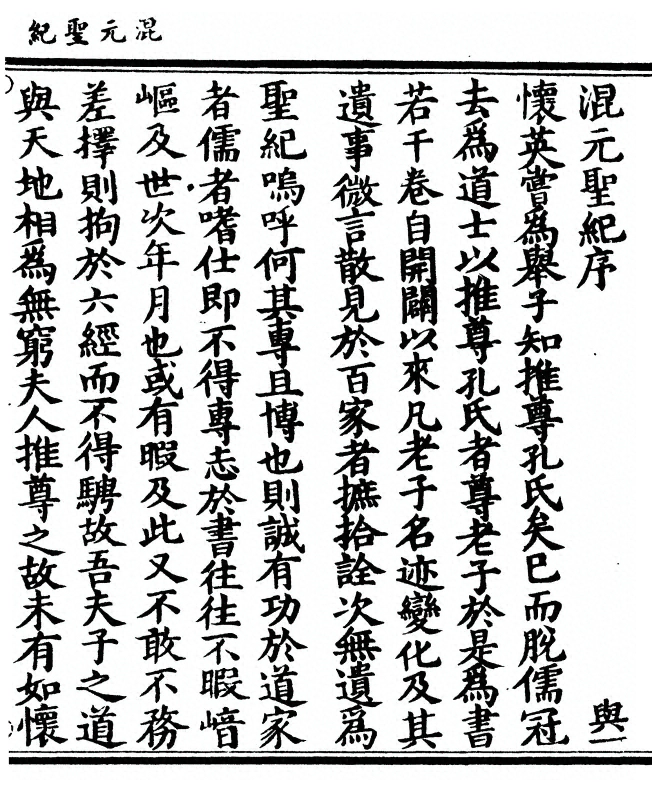 混元聖紀
混元聖紀序 與一
懷英嘗爲舉子知推尊孔氏矣已而脫儒冠
去爲道士以推尊孔氏者尊老子於是爲書
若干卷自開闢以來凡老子名迹變化及其
遺事微言散見於百家者摭拾詮次無遺爲
聖紀嗚呼何其專且博也則誠有功於道家
者儒者嗜仕即不得專志於書往往不暇﨑
嶇及世次年月也或有暇及此又不敢不務
差擇則拘於六經而不得騁故吾夫子之道
與天地相爲無窮夫人推尊之故未有如懷